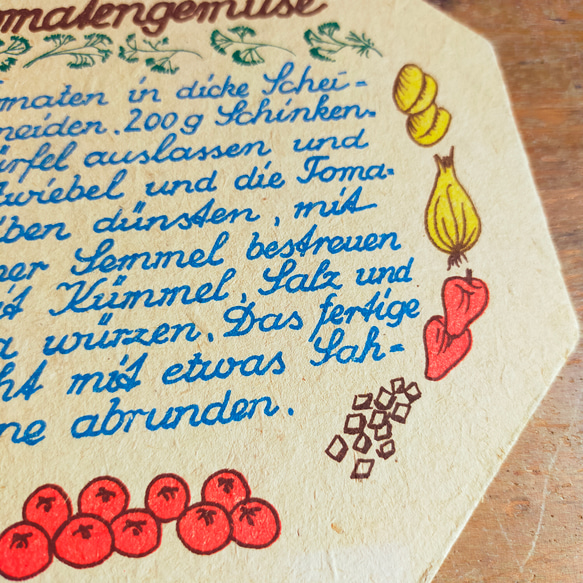 omatengemüse
maten in dicke Schei-
neiden. 200 g Schinken-
ürfel auslassen und
wiebel und die Toma-
iben dünsten, mit
er Semmel bestreuen
it Kümmel, Salz und
a würzen. Das fertige
ht mit etwas Sah-
ne abrunden.